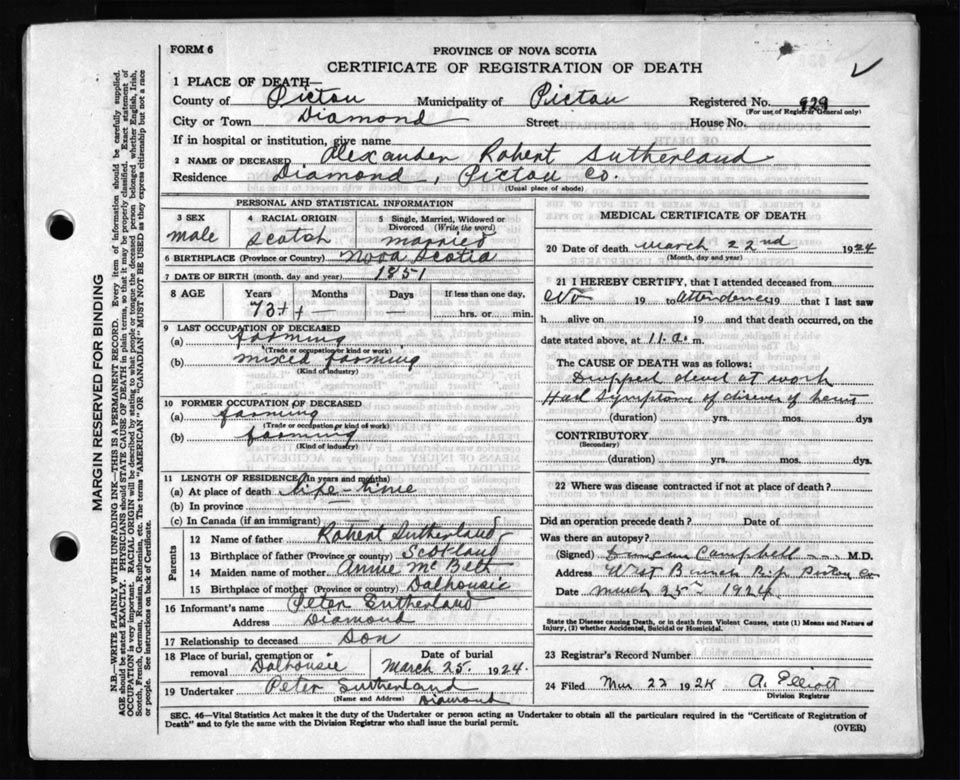 FORM 6
PROVINCE OF NOVA SCOTIA
CERTIFICATE OF REGISTRATION OF DEATH
1 PLACE OF DEATH—
County of Pictou Municipality of Pictou Registered No. 929
(For use of Registrar General only)
City or Town Diamond Street House No.
If in hospital or institution, give name
2 NAME OF DECEASED Alexander Robert Sutherland
Residence Diamond, Pictou Co.
(Usual place of abode)
PERSONAL AND STATISTICAL INFORMATION
3 SEX
male
4 RACIAL ORIGIN
Scotch
5 Single, Married, Widowed or Divorced (Write the word)
married
6 BIRTHPLACE (Province or Country) Nova Scotia
7 DATE OF BIRTH (month, day and year) 1851
8 AGE Years Months Days If less than one day,
73 — — hrs. or min.
9 LAST OCCUPATION OF DECEASED
(a) farming
(Trade or occupation or kind or work)
(b) mixed farming
(Kind of industry)
10 FORMER OCCUPATION OF DECEASED
(a) farming
(Trade or occupation or kind of work)
(b) farming
(Kind of industry)
11 LENGTH OF RESIDENCE (In years and months)
(a) At place of death life-time
(b) In province
(c) In Canada (if an immigrant)
Parents
12 Name of father Robert Sutherland
13 Birthplace of father (Province or country) Scotland
14 Maiden name of mother Annie McBeth
15 Birthplace of mother (Province or country) Dalhousie
16 Informant's name Peter Sutherland
Address Diamond
17 Relationship to deceased Son
18 Place of burial, cremation or removal Dalhousie
Date of burial
March 25. 1924.
19 Undertaker Peter Sutherland
(Name and Address) Diamond
MEDICAL CERTIFICATE OF DEATH
20 Date of death March 22nd 1924
(Month, day and year)
21 I HEREBY CERTIFY, that I attended deceased from
No 19 to attendence 19 that I last saw
h alive on 19 and that death occurred, on
date stated above, at 11. a. m.
The CAUSE OF DEATH was as follows:
Dropped dead at work
Had symptoms of disease of heart
(duration) yrs. mos. dys
CONTRIBUTORY
(Secondary)
(duration) yrs. mos. dys.
22 Where was disease contracted if not at place of death?
Did an operation precede death? Date of
Was there an autopsy?
(Signed) Duncan Campbell M.D.
Address West Branch Pictou Co
Date March 25 1924
State the Disease causing Death, or in death from Violent Causes, state (1) Means and Nature of Injury, (2) whether Accidental, Suicidal or Homicidal.
23 Registrar's Record Number
24 Filed Mar 22 1924 A. Elliott
Division Registrar
SEC. 46—Vital Statistics Act makes it the duty of the Undertaker or person acting as Undertaker to obtain all the particulars required in the "Certificate of Registration of
Death" and to fyle the same with the Division Registrar who shall issue the burial permit.
(OVER)
MARGIN RESERVED FOR BINDING
N.B.—WRITE PLAINLY WITH UNFADING INK—THIS IS A PERMANENT RECORD. Every item of information should be carefully supplied.
AGE should be stated EXACTLY. PHYSICIANS should STATE CAUSE OF DEATH in plain terms, so that it may be properly classified. Exact statement of
OCCUPATION is very important. RACIAL ORIGIN will be described by stating to what people or tongue the deceased person belonged whether English, Irish,
Scotch, French, German, Russian, Ruthenian, etc. The terms "AMERICAN" OR "CANADIAN" MUST NOT BE USED as they express citizenship but not a race
or people. See instructions on back of Certificate.